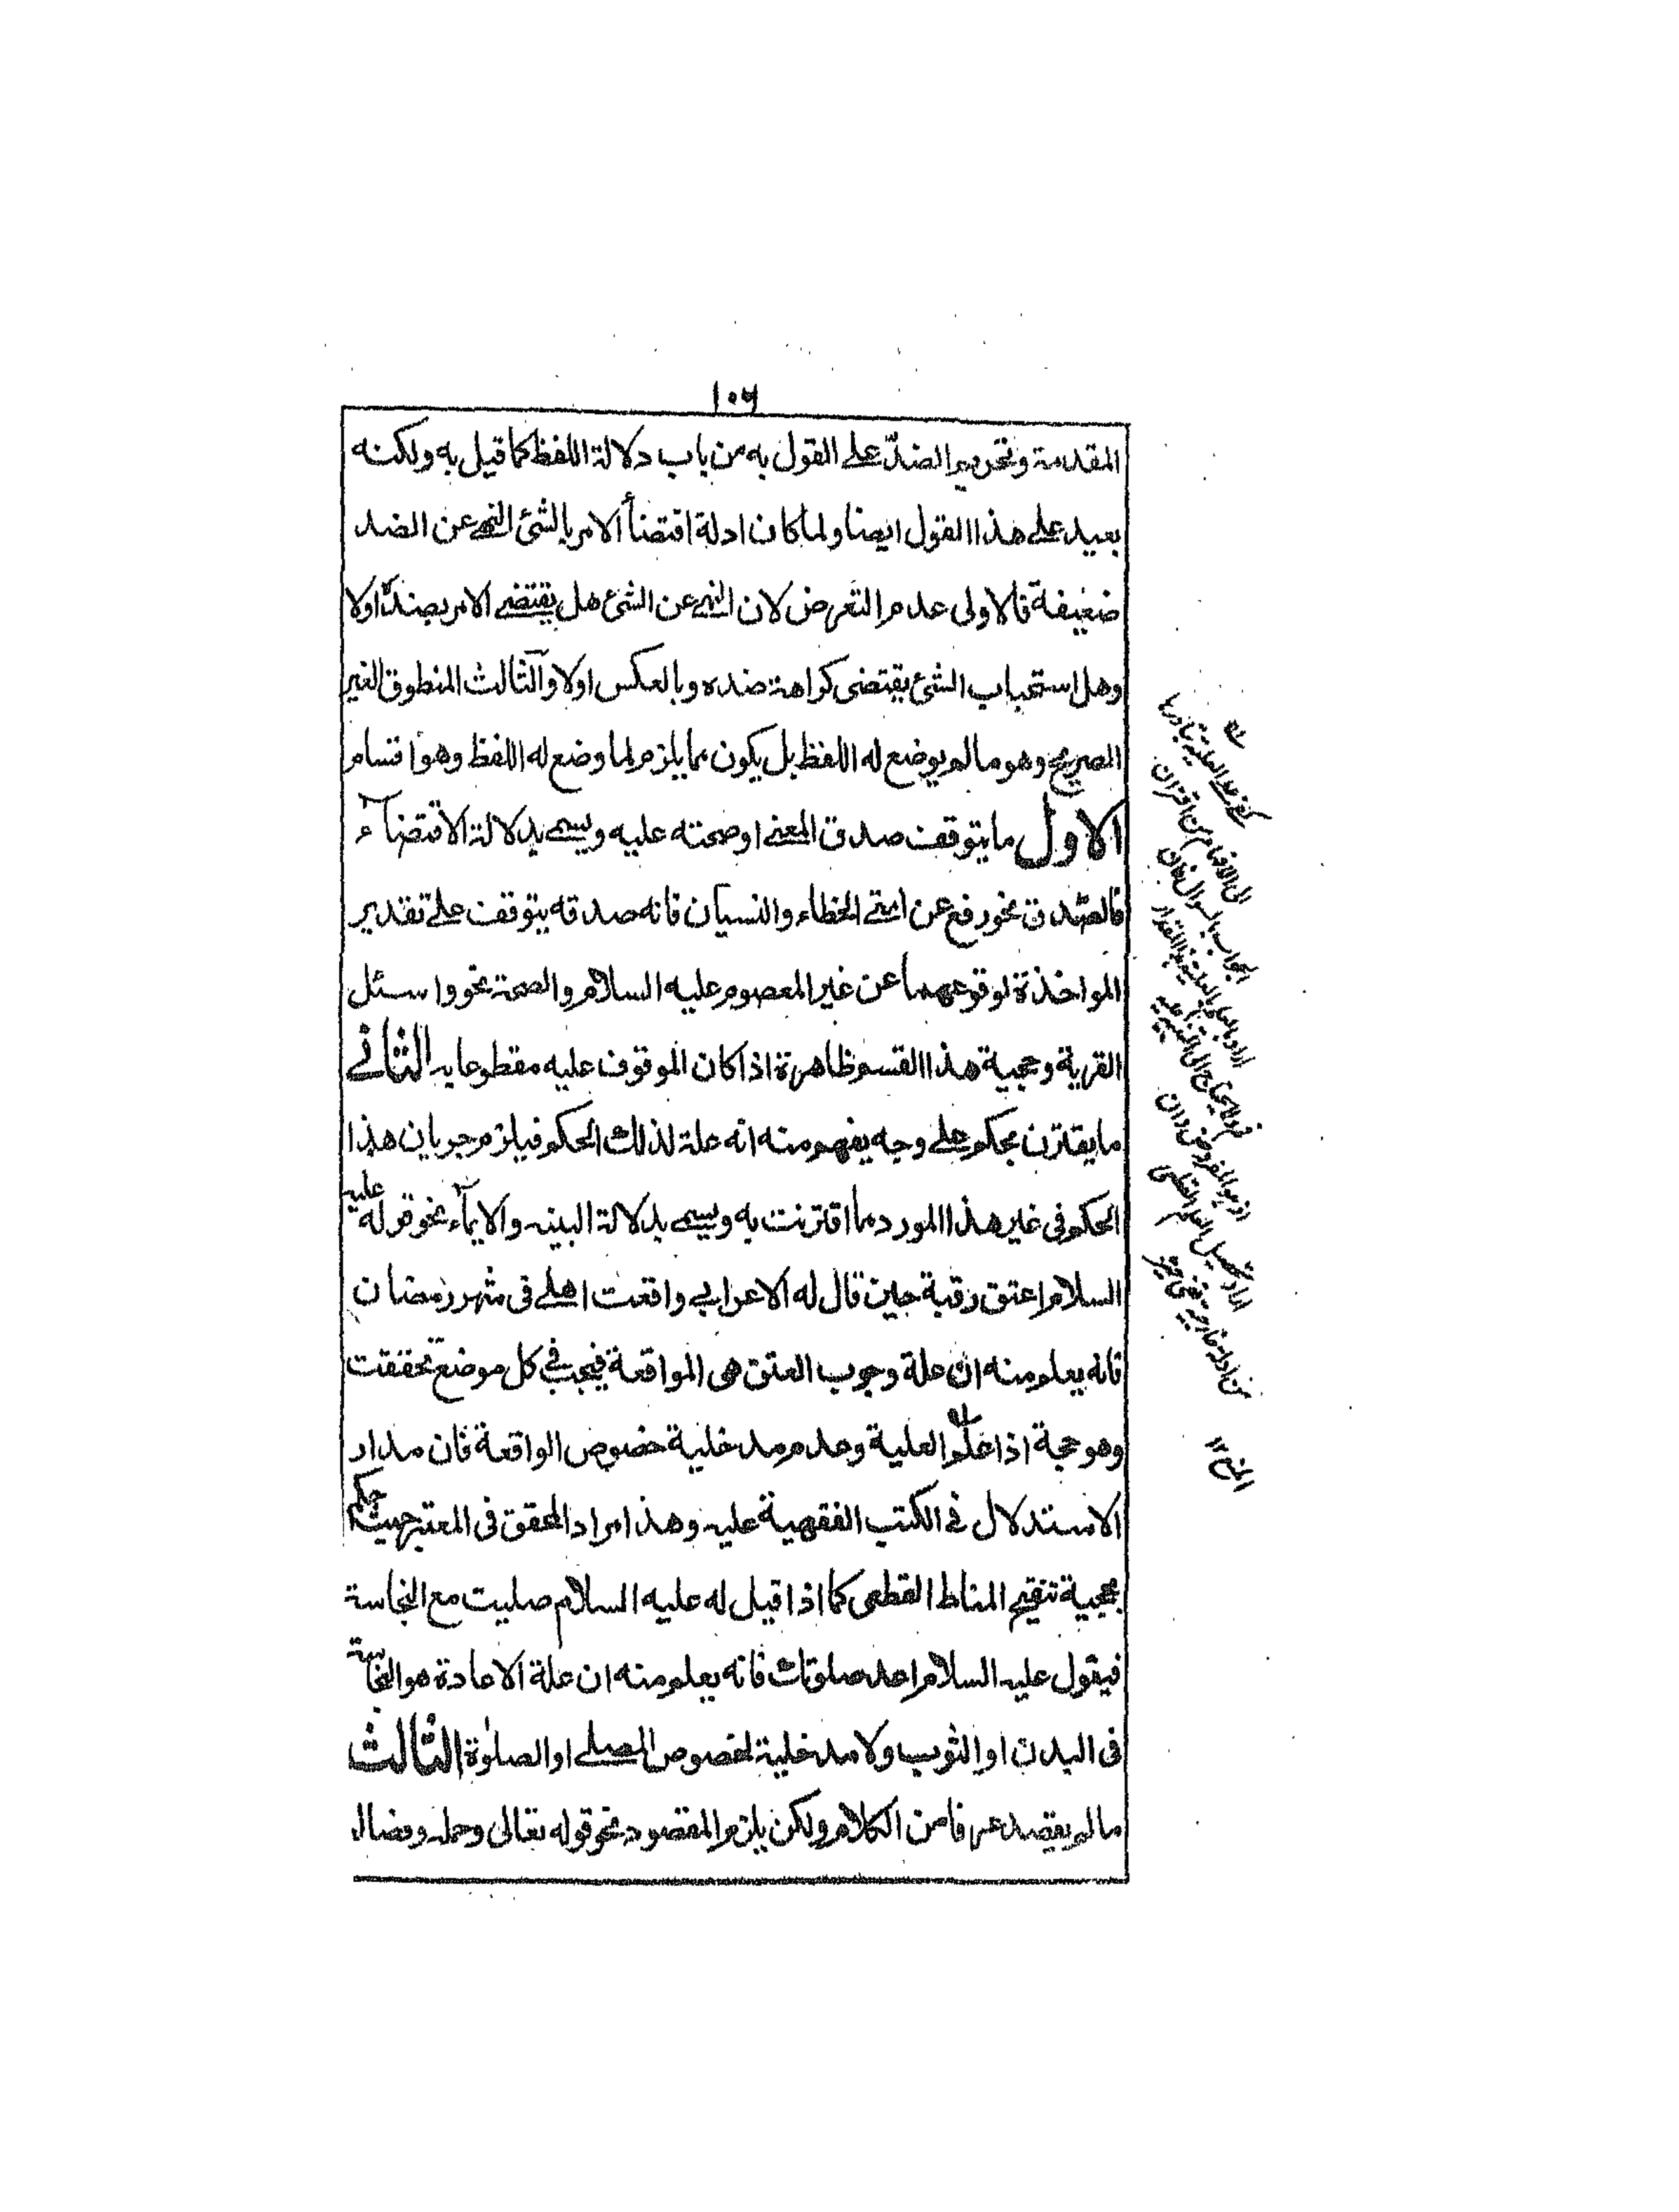 ١٠٦
المقدمة وتحريم الضد على القول به من باب دلالة اللفظ كما قيل به ولكنه
بعيد على هذا القول ايضا ولما كان ادلة اقتضأ الامر بالشئ النهي عن الضد
ضعيفة فالاولى عدم التعرض لان النهي عن الشئ هل يقتضي الامر بضده اولا
وهل استحباب الشئ يقتضى كراهة ضده وبالعكس اولا والثالث المنطوق الغير
الصريح وهو ما لم يوضع له اللفظ بل يكون مما يلزم لما وضع له اللفظ وهو اقسام
الاول ما يتوقف صدق المعنى او صحته عليه ويسمى بدلالة الاقتضآء
فالصدق نحو رفع عن امتي الخطاء والنسيان فانه صدقه يتوقف على تقدير
المواخذة لوقوعهما عن غير المعصوم عليه السلام والصحة نحو واسئل
القرية وحجية هذا القسم ظاهرة اذا كان الموقوف عليه مقطوعا به الثاني
ما يقترن بحكم على وجه يفهم منه انه علة لذلك الحكم فيلزم جريان هذا
الحكم فى غير هذا المورد مما اقترنت به ويسمى بدلالة البينه والايمآء نحو قوله عليه
السلام اعتق رقبة حين قال له الاعرابي واقعت اهلي فى شهر رمضان
فانه يعلم منه ان علة وجوب العتق هى المواقعة فيجب في كل موضع تحققت
وهو حجة اذا علم العلية وعدم مدخلية خصوص الواقعة فان مدار
الاستدلال في الكتب الفقهية عليه وهذا مراد المحقق فى المعتبر حيث حكم
بحجية تنقيح المناط القطعى كما اذا قيل له عليه السلام صليت مع النجاسة
فيقول عليه السلام اعد صلوتك فانه يعلم منه ان علة الاعادة هو النجاسة
فى البدن او الثوب ولا مدخلية لخصوص المصلى او الصلوة الثالث
ما لم يقصد عرفا من الكلام ولكن يلزم المقصود نحو قوله تعالى وحمله وفصاله